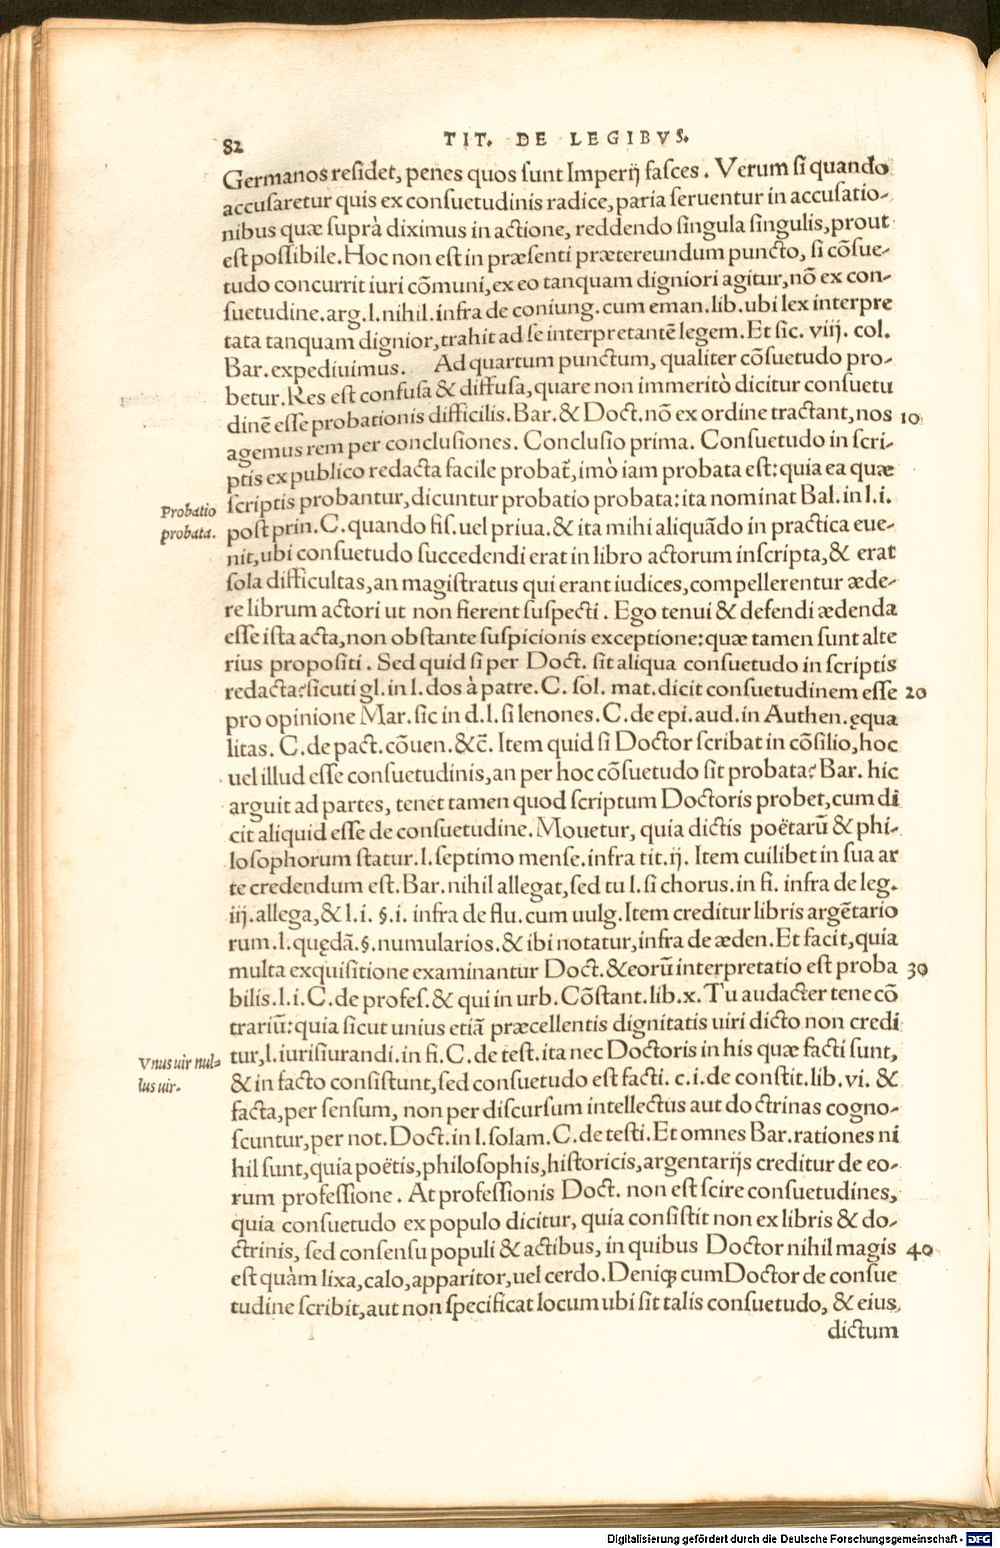 82
TIT. DE LEGIBVS.
Germanos residet, penes quos sunt Imperij fasces. Verum si quando
accusaretur quis ex consuetudinis radice, paria seruentur in accusatio-
nibus quæ suprà diximus in actione, reddendo singula singulis, prout
est possibile. Hoc non est in præsenti prætereundum puncto, si cõsue-
tudo concurrit iuri cõmuni, ex eo tanquam digniori agitur, nõ ex con-
suetudine. arg. l. nihil. infra de coniung. cum eman. lib. ubi lex interpre
tata tanquam dignior, trahit ad se interpretantẽ legem. Et sic. viij. col.
Bar. expediuimus. Ad quartum punctum, qualiter cõsuetudo pro-
betur. Res est confusa & diffusa, quare non immeritò dicitur consuetu
dinẽ esse probationis difficilis. Bar. & Doct. nõ ex ordine tractant, nos 10
agemus rem per conclusiones. Conclusio prima. Consuetudo in scri-
ptis ex publico redacta facile probat̃, imò iam probata est: quia ea quæ
scriptis probantur, dicuntur probatio probata: ita nominat Bal. in l. i.
Probatio
probata.
post prin. C. quando fis. uel priua. & ita mihi aliquãdo in practica eue-
nit, ubi consuetudo succedendi erat in libro actorum inscripta, & erat
sola difficultas, an magistratus qui erant iudices, compellerentur æde-
re librum actori ut non fierent suspecti. Ego tenui & defendi ædenda
esse ista acta, non obstante suspicionis exceptione: quæ tamen sunt alte
rius propositi. Sed quid si per Doct. sit aliqua consuetudo in scriptis
redacta? sicuti gl. in l. dos à patre. C. sol. mat. dicit consuetudinem esse 20
pro opinione Mar. sic in d. l. si lenones. C. de epi. aud. in Authen. ęqua
litas. C. de pact. cõuen. &c̃. Item quid si Doctor scribat in cõsilio, hoc
uel illud esse consuetudinis, an per hoc cõsuetudo sit probata? Bar. hic
arguit ad partes, tenet tamen quod scriptum Doctoris probet, cum di
cit aliquid esse de consuetudine. Mouetur, quia dictis poëtarũ & phi-
losophorum statur. l. septimo mense. infra tit. ij. Item cuilibet in sua ar
te credendum est. Bar. nihil allegat, sed tu l. si chorus. in fi. infra de leg.
iij. allega, & l. i. §. i. infra de flu. cum uulg. Item creditur libris argẽtario
rum. l. quędã. §. numularios. & ibi notatur, infra de æden. Et facit, quia
multa exquisitione examinantur Doct. & eorũ interpretatio est proba 30
bilis. l. i. C. de profes. & qui in urb. Cõstant. lib. x. Tu audacter tene cõ
trariũ: quia sicut unius etiã præcellentis dignitatis uiri dicto non credi
Vnus uir nul-
lus uir.
tur, l. iurisiurandi. in fi. C. de test. ita nec Doctoris in his quæ facti sunt,
& in facto consistunt, sed consuetudo est facti. c. i. de constit. lib. vi. &
facta, per sensum, non per discursum intellectus aut doctrinas cogno-
scuntur, per not. Doct. in l. solam. C. de testi. Et omnes Bar. rationes ni
hil sunt, quia poëtis, philosophis, historicis, argentarijs creditur de eo-
rum professione. At professionis Doct. non est scire consuetudines,
quia consuetudo ex populo dicitur, quia consistit non ex libris & do-
ctrinis, sed consensu populi & actibus, in quibus Doctor nihil magis 40
est quàm lixa, calo, apparitor, uel cerdo. Deniqꝫ cum Doctor de consue
tudine scribit, aut non specificat locum ubi sit talis consuetudo, & eius
dictum
Digitalisierung gefördert durch die Deutsche Forschungsgemeinschaft - DFG